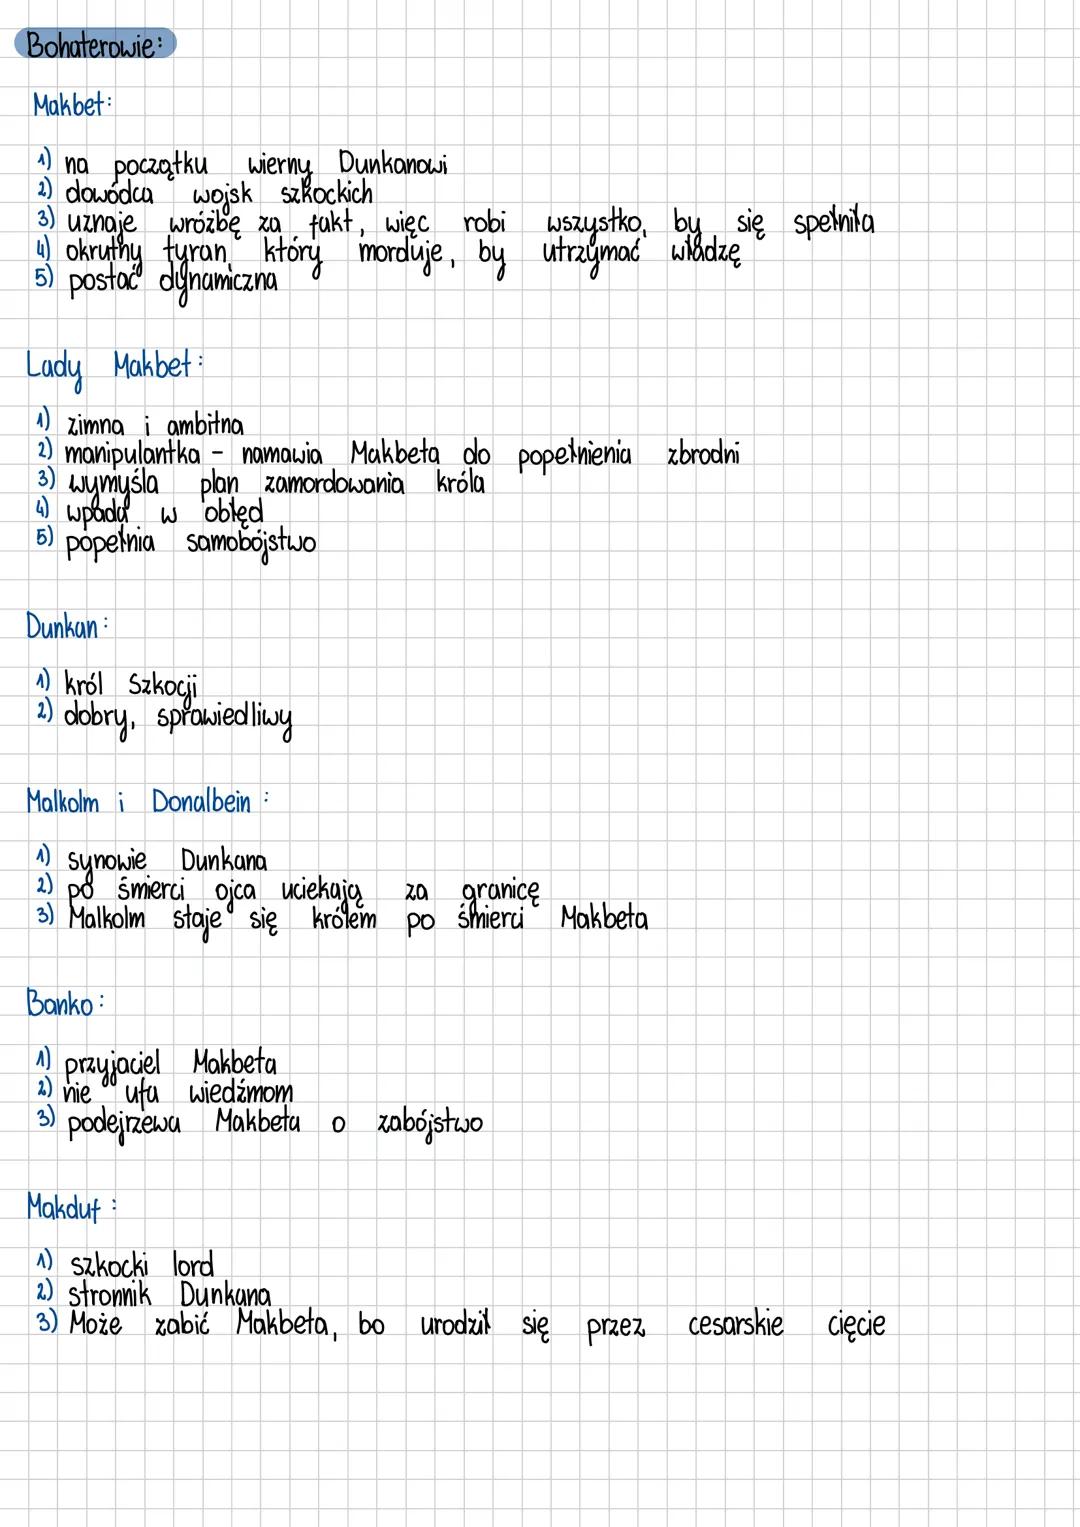 Bohaterowie:
Makbet:
1) na początku wierny Dunkanowi
2) dowódca wojsk szkockich
3) uznaje wróżbę za fakt, więc robi wszystko, by się spełniła
4) okrutny tyran, który morduje, by utrzymać władzę
5) postać dynamiczna
Lady Makbet:
1) zimna i ambitna
2) manipulantka - namawia Makbeta do popełnienia zbrodni
3) wymyśla plan zamordowania króla
4) wpada w obłęd
5) popełnia samobójstwo
Dunkan:
1) król Szkocji
2) dobry, sprawiedliwy
Malkolm i Donalbein:
1) synowie Dunkana
2) po śmierci ojca uciekają za granicę
3) Malkolm staje się królem po śmierci Makbeta
Banko:
1) przyjaciel Makbeta
2) nie ufa wiedźmom
3) podejrzewa Makbeta o zabójstwo
Makduf:
1) szkocki lord
2) stronnik Dunkana
3) Może zabić Makbeta, bo urodził się przez cesarskie cięcie